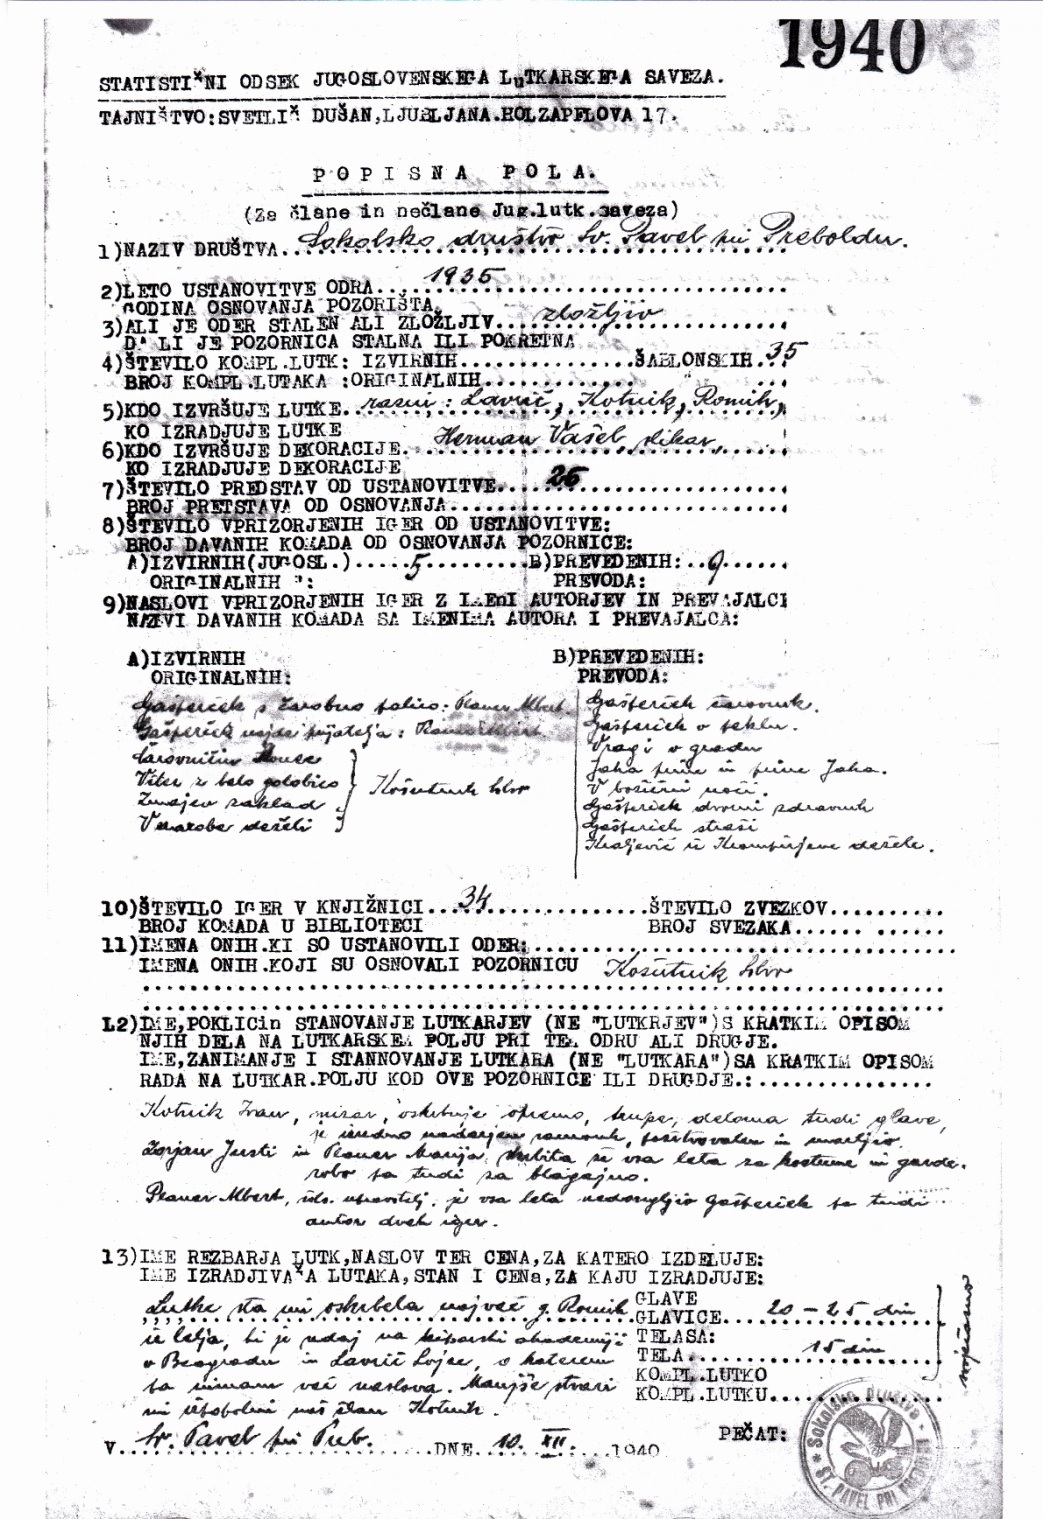 1940
STATISTIČNI ODSEK JUGOSLOVENSKEGA LUTKARSKEGA SAVEZA.
TAJNIŠTVO:SVETLIČ DUŠAN,LJUBLJANA.HOLZAPFLOVA 17.
POPISNA POLA.
(Za člane in nečlane Jug.lutk.saveza)
1)NAZIV DRUŠTVA..Sokolsko društvo Sv. Pavel pri Preboldu.
2)LETO USTANOVITVE ODRA....1935
GODINA OSNOVANJA POZORIŠTA.
3)ALI JE ODER STALEN ALI ZLOŽLJIV....zložljiv
DA LI JE POZORNICA STALNA ILI POKRETNA
4)ŠTEVILO KOMPL.LUTK: IZVIRNIH...............ŠABLONSKIH.35
BROJ KOMPL.LUTAKA :ORIGINALNIH..............
5)KDO IZVRŠUJE LUTKE..razni: Lavrič, Kotnik, Romih,
KO IZRADJUJE LUTKE
6)KDO IZVRŠUJE DEKORACIJE. Herman Vašel, slikar,
KO IZRADJUJE DEKORACIJE
7)ŠTEVILO PREDSTAV OD USTANOVITVE....26
BROJ PRETSTAVA OD OSNOVANJA..............
8)ŠTEVILO VPRIZORJENIH IGER OD USTANOVITVE:
BROJ DAVANIH KOMADA OD OSNOVANJA POZORNICE:
A)IZVIRNIH(JUGOSL.).....5.........B)PREVEDENIH:..9......
ORIGINALNIH ": PREVODA:
9)NASLOVI VPRIZORJENIH IGER Z IMEnI AUTORJEV IN PREVAJALCI
NAZVI DAVANIH KOMADA SA IMENIMA AUTORA I PREVAJALCA:
A)IZVIRNIH B)PREVEDENIH:
ORIGINALNIH: PREVODA:
Gašperček s čarobno palico: Planer Albert.
Gašperček najde prijatelja: Planer Albert
Čarovnitin
Viter z belo golobico
Zmajev zaklad
V narobe deželi
Košutnik Lovro
Gašperček čarovnik.
Gašperček v peklu.
Vragi v gradu
Jaka prine in prine Jaka.
V božični noči.
Gašperček dvorni zdravnik
Gašperček straši
Kraljevič iz Krompirjeve dežele.
10)ŠTEVILO IGER V KNJIŽNICI...34...............ŠTEVILO ZVEZKOV..........
BROJ KOMADA U BIBLIOTECI BROJ SVEZAKA...... ......
11)IMENA ONIH.KI SO USTANOVILI ODER:..............
IMENA ONIH.KOJI SU OSNOVALI POZORNICU Košutnik Lovro
12)IME,POKLICin STANOVANJE LUTKARJEV (NE "LUTKRJEV")S KRATKIM OPISOM
NJIH DELA NA LUTKARSKEM POLJU PRI TEM ODRU ALI DRUGJE.
IME,ZANIMANJE I STANNOVANJE LUTKARA (NE "LUTKARA")SA KRATKIM OPISOM
RADA NA LUTKAR.POLJU KOD OVE POZORNICE ILI DRUGDJE.:..............
Kotnik Ivan, mizar, oskrbuje opremo, deloma tudi glave,
je izredno nadarjen samouk, požrtvovalen in marljiv.
Zorjan Justi in Planer Marija skrbita že vsa leta za kostume in garde-
robo ta tudi za blagajno.
Planer Albert, šols. upravitelj, je vsa leta Gašperček ta tudi
autor dveh iger.
13)IME REZBARJA LUTK,NASLOV TER CENA,ZA KATERO IZDELUJE:
IME IZRADJIVAČA LUTAKA,STAN I CENa,ZA KAJU IZRADJUJE:
Lutke sta mi oskrbela največ g. Romih GLAVE
GLAVICE......20 - 25 din
iz Celja, ki je sedaj na kiparski akademiji TELASA:
v Beogradu in Lavrič Lojze, o katerem TELA.....15 din
ta nimam več naslova. Manjše stvari KOMPL.LUTKO
KOMPL.LUTKU..............
mi izpopolni naš član Kotnik.
navječano
V..Sv. Pavel pri Preb. ......DNE.10. XII. ...1940
PEČAT:
Sokolsko društvo
ST. PAVEL PRI PREBOLDU